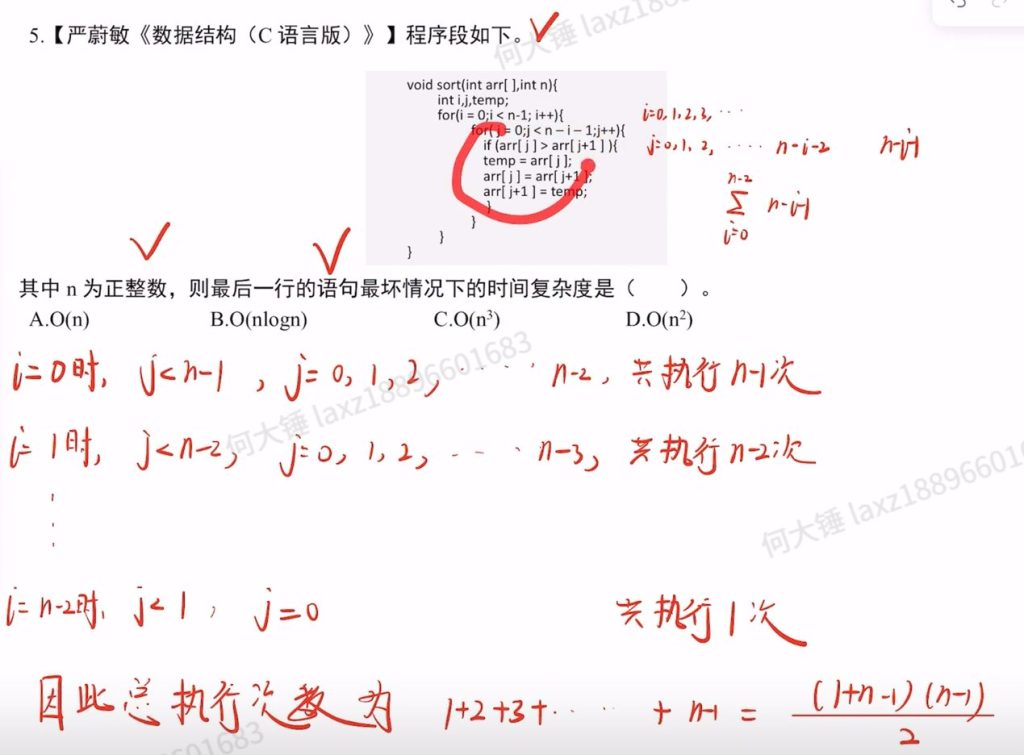 5.【严蔚敏《数据结构（C 语言版）》】程序段如下。
void sort(int arr[ ],int n){
int i,j,temp;
for(i = 0;i < n-1; i++){
for( j = 0;j < n – i – 1;j++){
if (arr[ j ] > arr[ j+1 ] ){
temp = arr[ j ];
arr[ j ] = arr[ j+1 ];
arr[ j+1 ] = temp;
}
}
}
}
i=0,1,2,3, ····
j=0,1,2, ···· n-i-2 n-i-1
n-2
∑ n-i-1
i=0
其中 n 为正整数，则最后一行的语句最坏情况下的时间复杂度是（ ）。
A.O(n) B.O(nlogn) C.O(n³) D.O(n²)
i=0时, j<n-1 , j=0,1,2, ···· n-2, 共执行n-1次
i=1时, j<n-2, j=0,1,2, ···· n-3, 共执行n-2次
⋮
i=n-2时, j<1, j=0 共执行1次
因此总执行次数为 1+2+3+···· + n-1 = (1+n-1)(n-1)
2
何大锤 laxz18896601683
何大锤 laxz18896601683